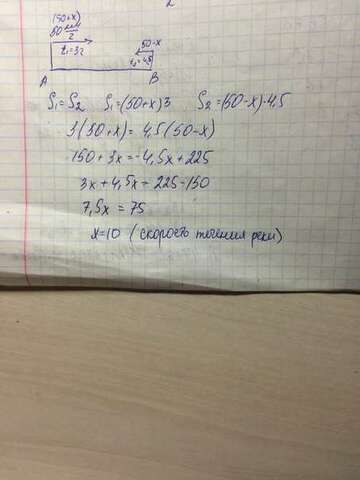 (50+x)
50 км/2
t₁=3ч 50-x
t₂=4,5
A B
S₁=S₂ S₁=(50+x)3 S₂=(50-x)·4,5
3(50+x)=4,5(50-x)
150+3x=-4,5x+225
3x+4,5x=225-150
7,5x=75
x=10 (скорость течения реки)